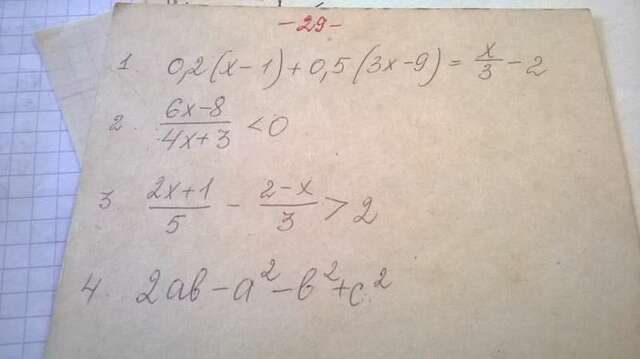 -29-
1. 0,2(x-1)+0,5(3x-9)=x/3-2
2. (6x-8)/(4x+3)<0
3. (2x+1)/5-(2-x)/3>2
4. 2ab-a²-b²+c²